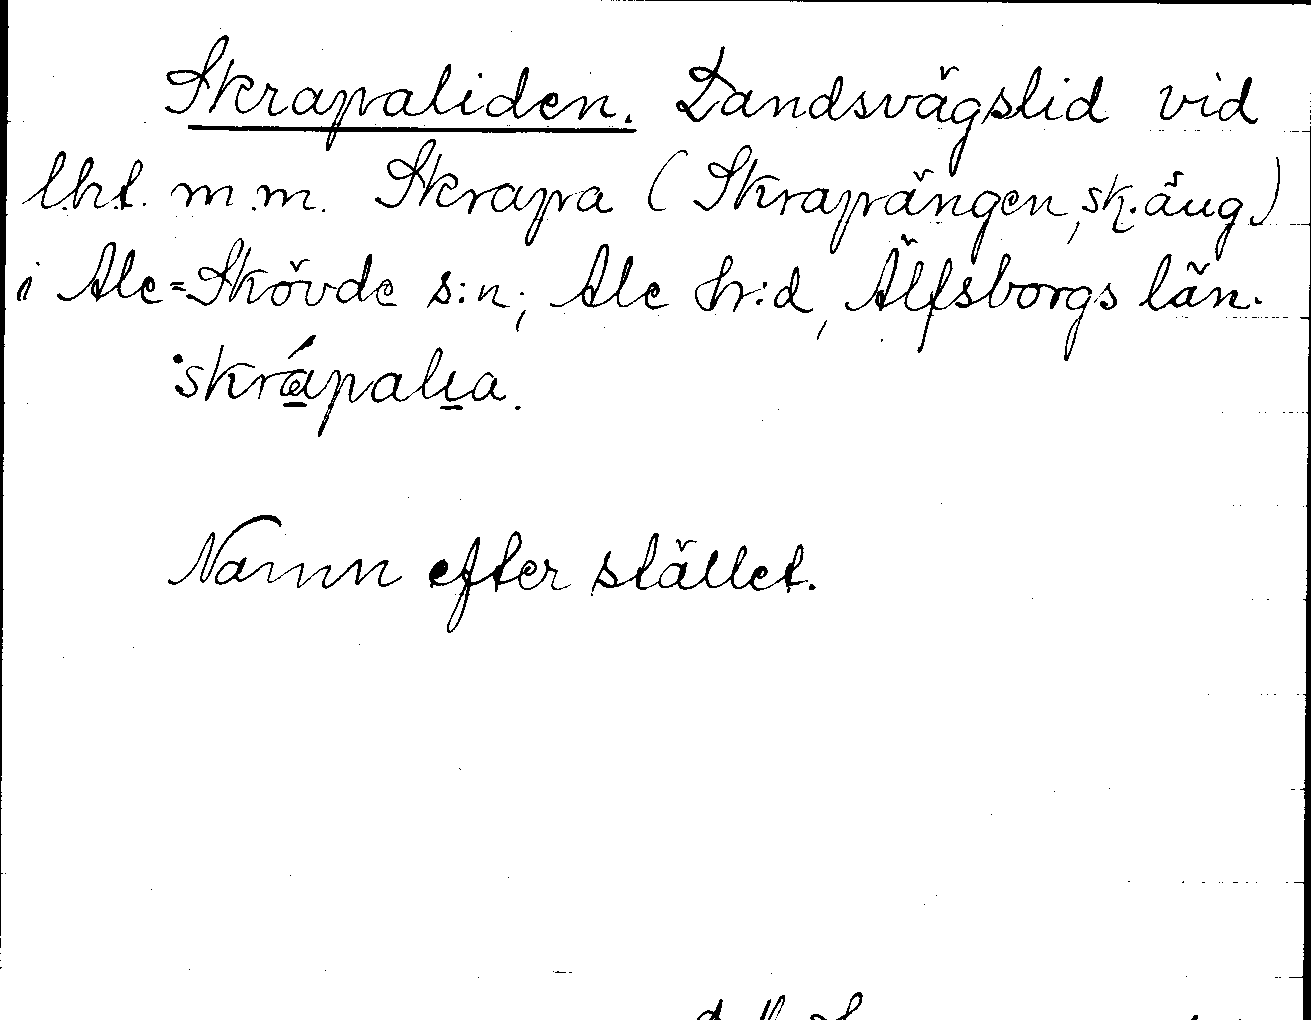 Skrapaliden. Landsvägslid vid
lht. m.m. Skrapa (Skrapängen, sk.äng.)
i Ale-Skövde s:n, Ale hr:d, Älfsborgs län.
Namn efter stället.